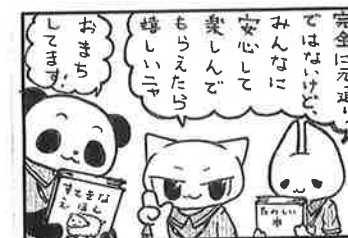 完全に元通り
ではないけど、
みんなに
安心して
楽しんで
もらえたら
嬉しいニャ
おまち
してます。
たのしい
本
すてきな
えほん